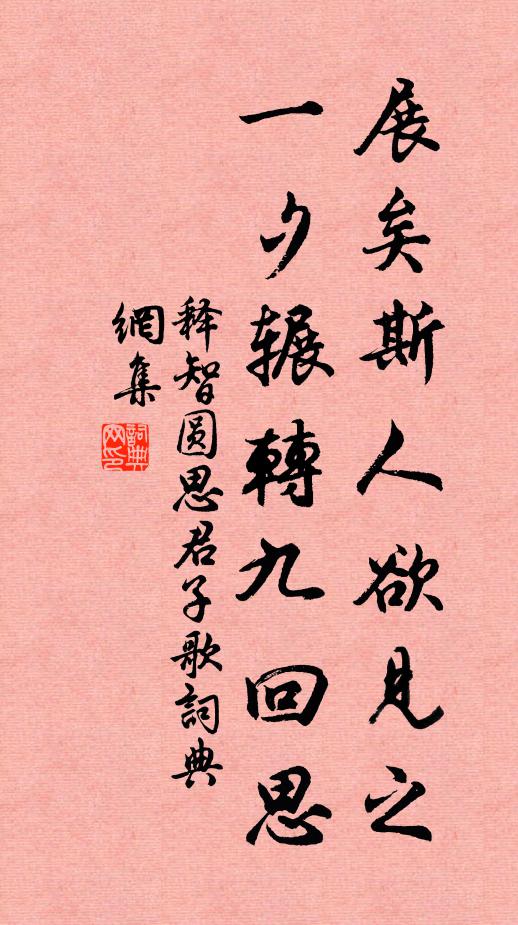 展矣斯人欲見之
一夕辗轉九回思
释智圆思君子歌詞典
網集
詞典
网印